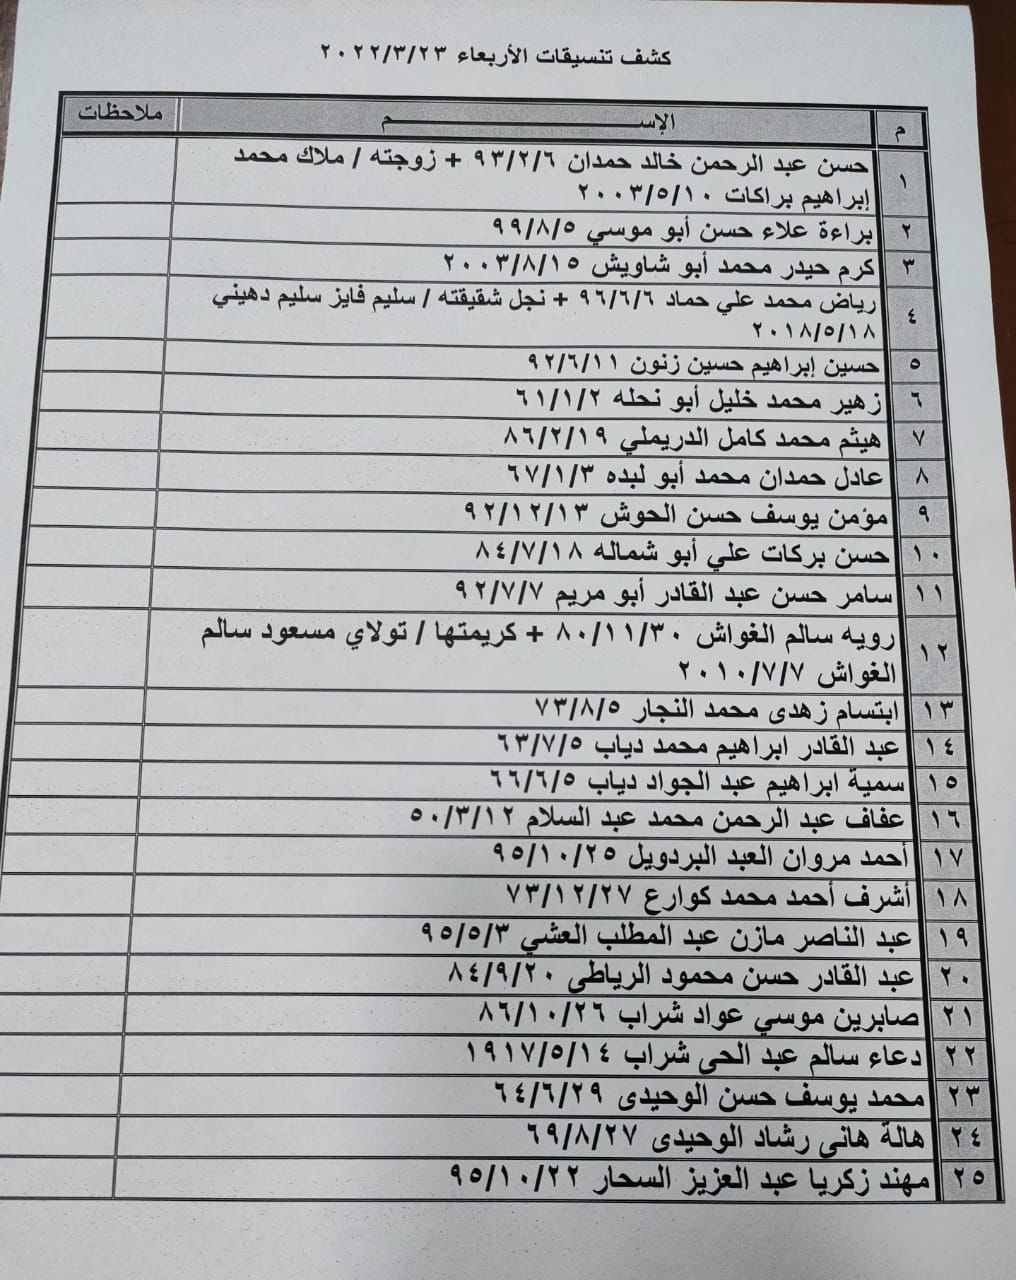 كشف تنسيقات الأربعاء ٢٠٢٢/٣/٢٣
م الإســـــــــم ملاحظات
١ حسن عبد الرحمن خالد حمدان ٩٣/٢/٦ + زوجته / ملاك محمد
إبراهيم براكات ٢٠٠٣/٥/١٠
٢ براءة علاء حسن أبو موسي ٩٩/٨/٥
٣ كرم حيدر محمد أبو شاويش ٢٠٠٣/٨/١٥
٤ رياض محمد علي حماد ٩٦/٦/٦ + نجل شقيقته / سليم فايز سليم دهيني
٢٠١٨/٥/١٨
٥ حسين إبراهيم حسين زنون ٩٢/٦/١١
٦ زهير محمد خليل أبو نحله ٦١/١/٢
٧ هيثم محمد كامل الدريملي ٨٦/٢/١٩
٨ عادل حمدان محمد أبو لبده ٦٧/١/٣
٩ مؤمن يوسف حسن الحوش ٩٢/١٢/١٣
١٠ حسن بركات علي أبو شماله ٨٤/٧/١٨
١١ سامر حسن عبد القادر أبو مريم ٩٢/٧/٧
١٢ رويه سالم الغواش ٨٠/١١/٣٠ + كريمتها / تولاي مسعود سالم
الغواش ٢٠١٠/٧/٧
١٣ ابتسام زهدى محمد النجار ٧٣/٨/٥
١٤ عبد القادر ابراهيم محمد دياب ٦٣/٧/٥
١٥ سمية ابراهيم عبد الجواد دياب ٦٦/٦/٥
١٦ عفاف عبد الرحمن محمد عبد السلام ٥٠/٣/١٢
١٧ أحمد مروان العبد البردويل ٩٥/١٠/٢٥
١٨ أشرف أحمد محمد كوارع ٧٣/١٢/٢٧
١٩ عبد الناصر مازن عبد المطلب العشي ٩٥/٥/٣
٢٠ عبد القادر حسن محمود الرياطي ٨٤/٩/٢٠
٢١ صابرين موسي عواد شراب ٨٦/١٠/٢٦
٢٢ دعاء سالم عبد الحى شراب ١٩١٧/٥/١٤
٢٣ محمد يوسف حسن الوحيدى ٦٤/٦/٢٩
٢٤ هالة هانى رشاد الوحيدى ٦٩/٨/٢٧
٢٥ مهند زكريا عبد العزيز السحار ٩٥/١٠/٢٢